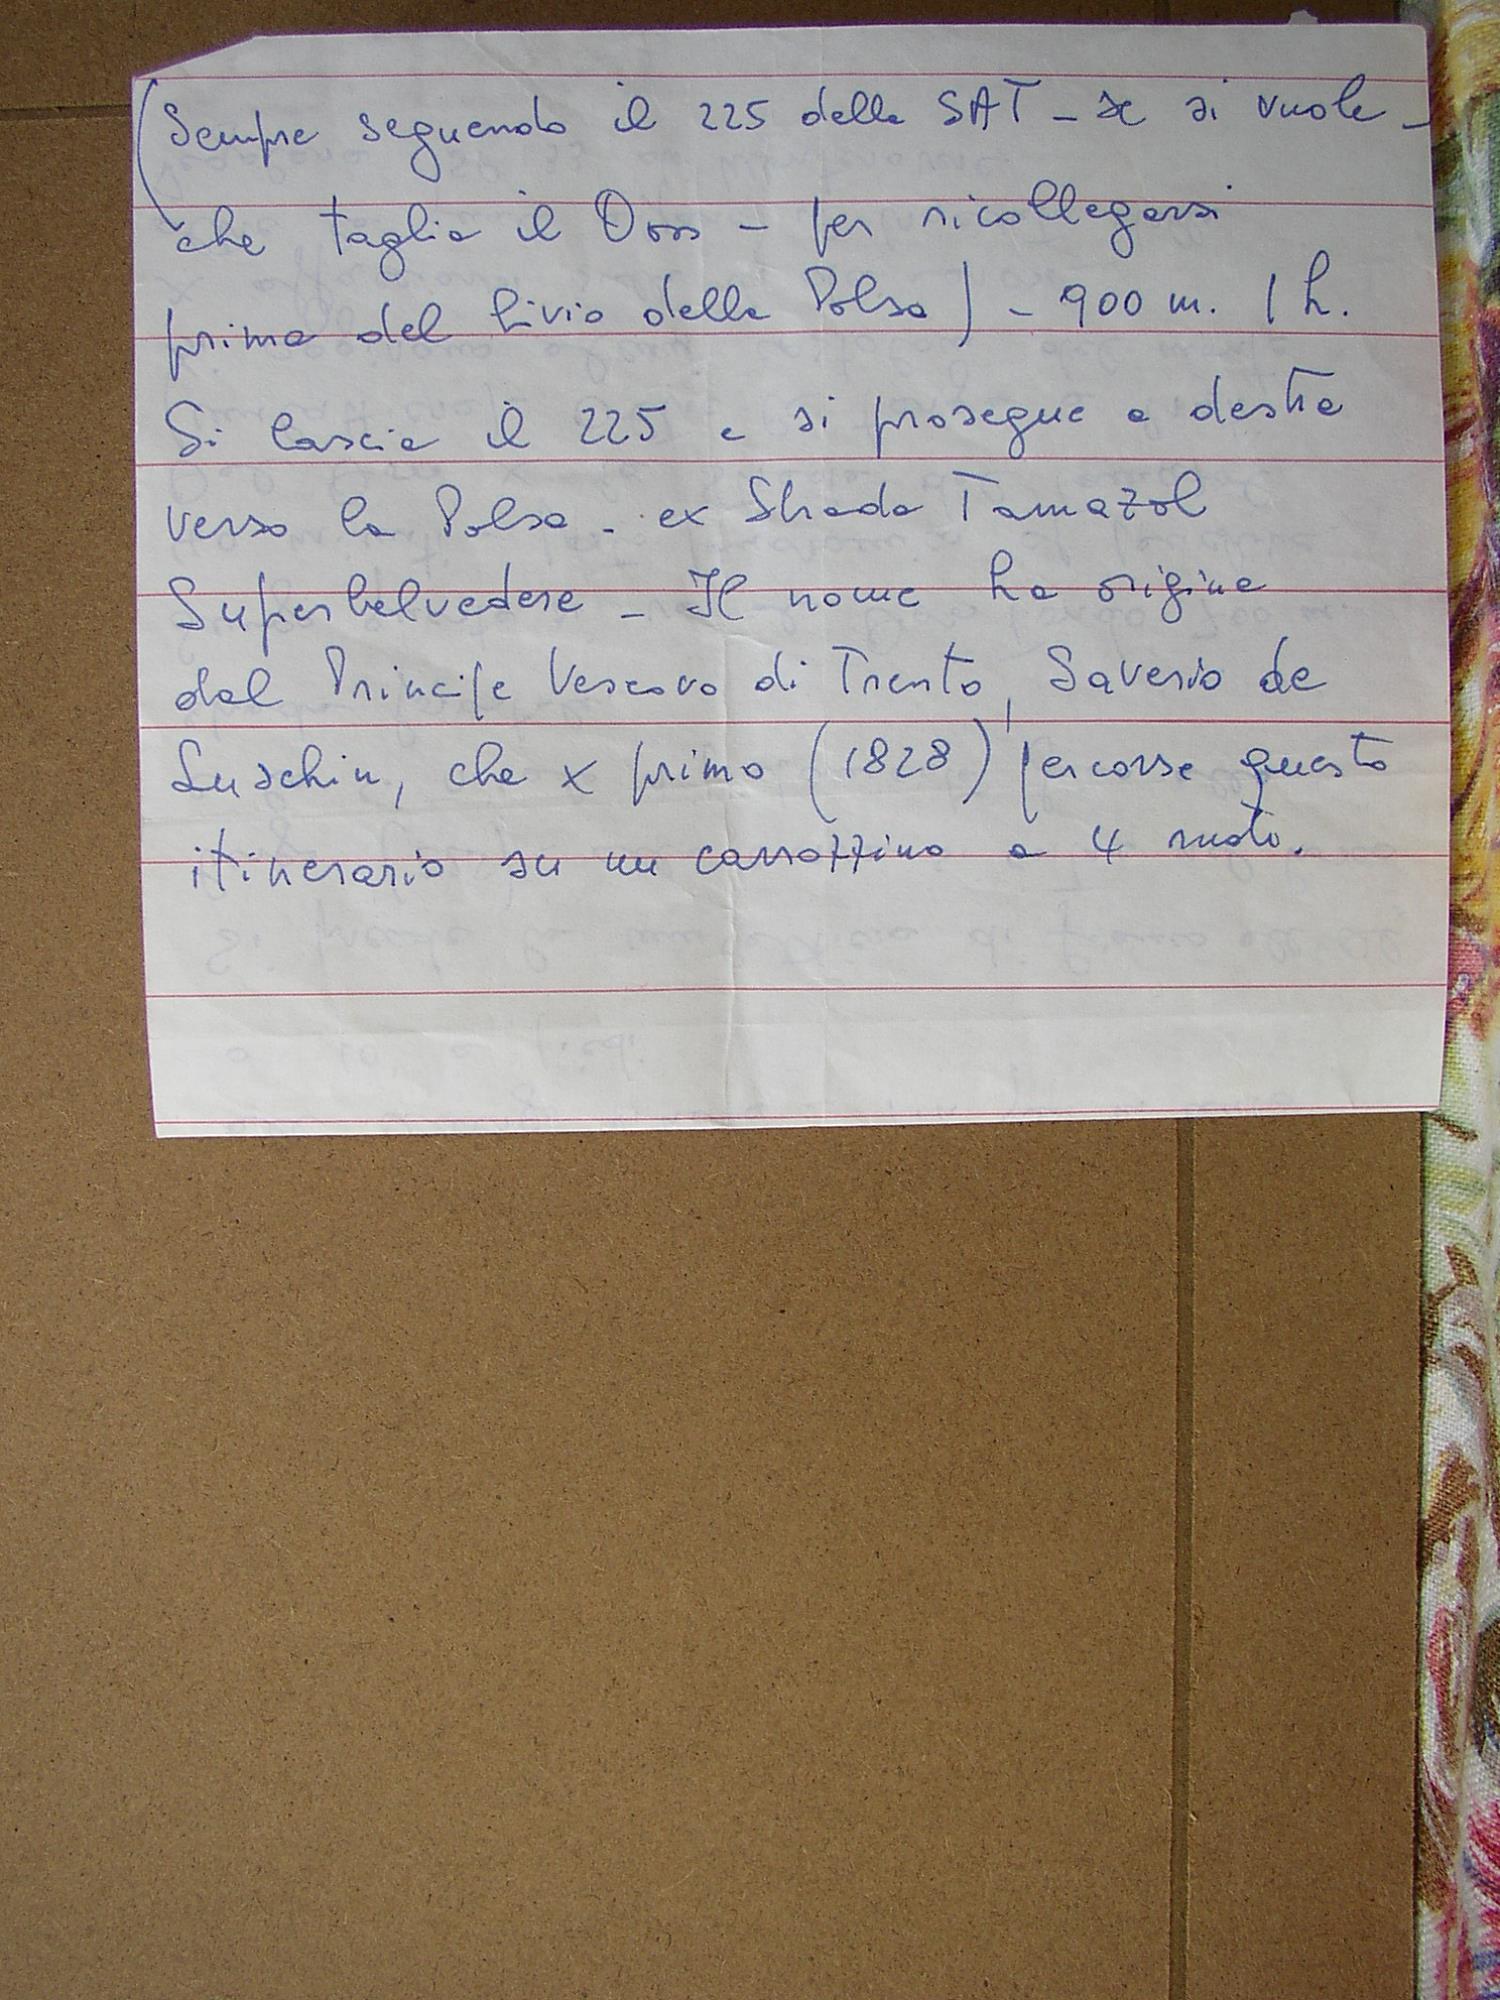 (Sempre seguendo il 225 della SAT - se si vuole -
che taglia il Doss - per ricollegarsi
prima del bivio della Polsa) - 900 m. 1 h.
Si lascia il 225 e si prosegue a destra
verso la Polsa - ex Strada Tamazol
Superbelvedere - Il nome ha origine
dal Principe Vescovo di Trento, Saverio de
Luschin, che x primo (1828) percorse questo
itinerario su un carrozzino a 4 ruote.